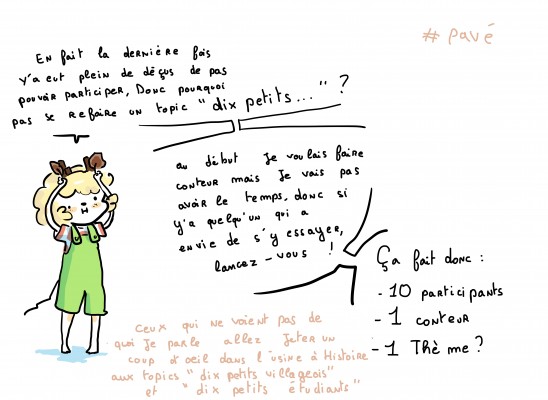 # pavé
En fait la dernière fois
y'a eut plein de déçus de pas
pouvoir participer, Donc pourquoi
pas se refaire un topic "dix petits..." ?
au début Je voulais faire
conteur mais Je vais pas
avoir le temps, donc si
y'a quelqu'un qui a
envie de s'y essayer,
lancez-vous !
Ça fait donc :
- 10 participants
- 1 conteur
- 1 Thème ?
Ceux qui ne voient pas de
quoi Je parle allez Jeter un
coup d'oeil dans l'usine à Histoire
aux topics "dix petits villageois"
et "dix petits étudiants"